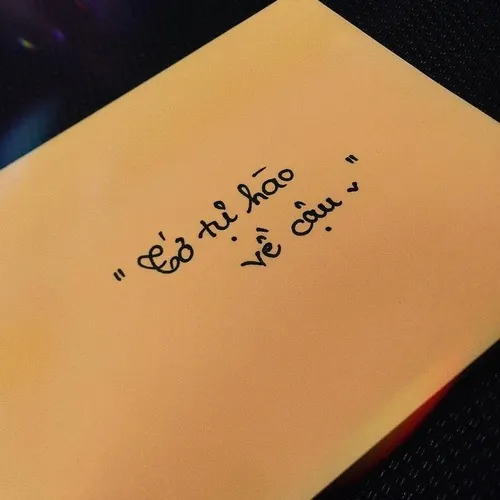 "Tớ tự hào
về cậu"